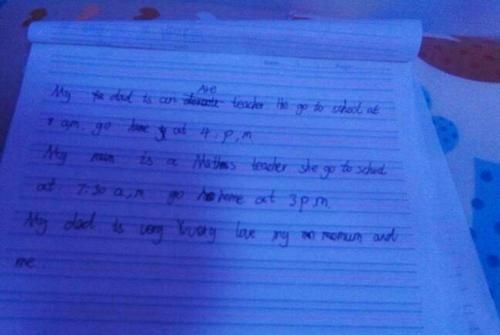 Art
My dad is an teacher He go to school at
8 a.m. go home at 4. p.m
My mum is a Maths teacher she go to school
at 7:30 a.m go home at 3 p.m.
My dad is very very love my momum and
me